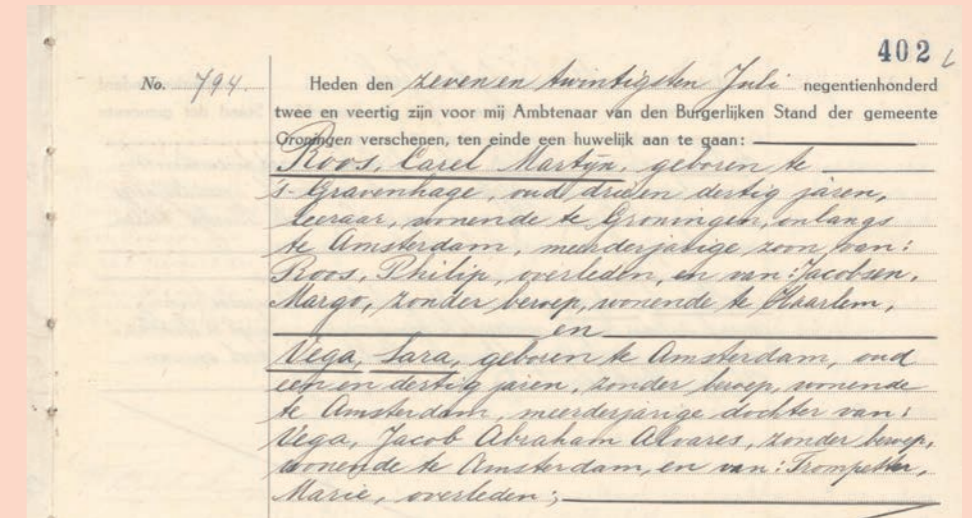 402 L
No. 794. Heden den zeven en twintigsten Juli negentienhonderd
twee en veertig zijn voor mij Ambtenaar van den Burgerlijken Stand der gemeente
Groningen verschenen, ten einde een huwelijk aan te gaan:
Roos, Carel Martijn, geboren te
's-Gravenhage, oud drie en dertig jaren,
leeraar, wonende te Groningen, onlangs
te Amsterdam, meerderjarige zoon van:
Roos, Philip, overleden, en van: Jacobsen,
Margo, zonder beroep, wonende te Haarlem,
en
Vega, Sara, geboren te Amsterdam, oud
een en dertig jaren, zonder beroep, wonende
te Amsterdam, meerderjarige dochter van:
Vega, Jacob Abraham Alvares, zonder beroep,
wonende te Amsterdam, en van: Trompetter,
Marie, overleden;